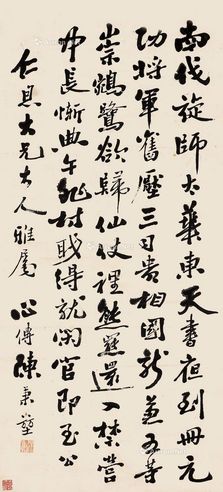 南伐旋師太華東天書夜到冊元
功將軍舊壓三司貴相國新兼五等
崇鵷鷺欲歸仙仗裡熊羆還入禁營
中長慚典午非材職得就閒官即至公
仁具大兄大人雅屬 心傳陳兼